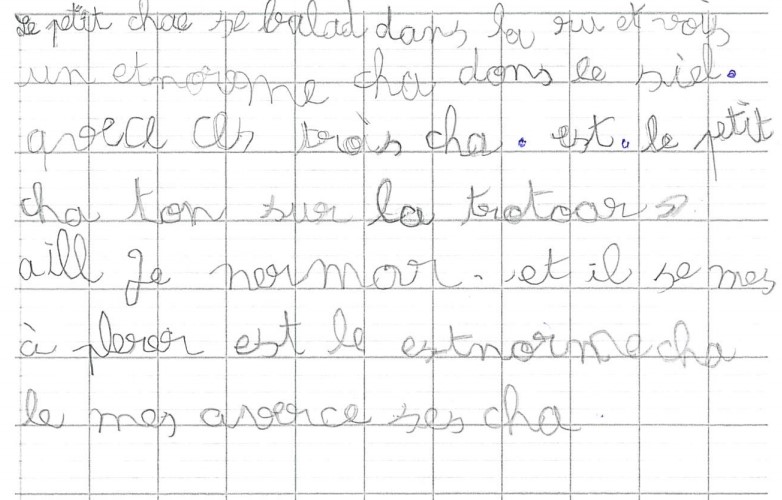 Le petit chae se balad dans la ru et vois
un etnorme cha dans le siel.
avece ces trois cha. est. le petit
cha ton sur la trotoar
aill Je normour. et il se mes
à pleror est le estnorme cha
le mes averce ses cha.